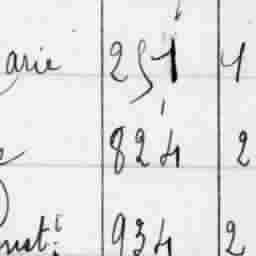 arie 251 1
824 2
934 2